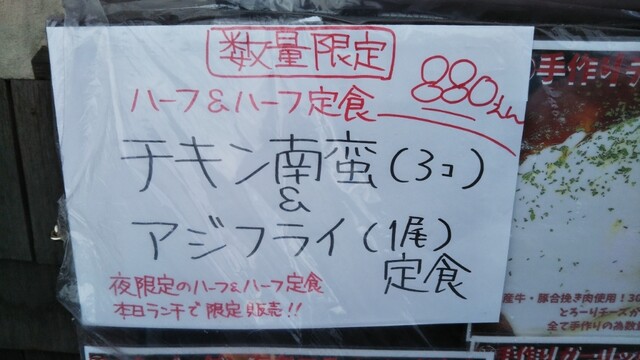 数量限定
ハーフ&ハーフ定食 880えん
チキン南蛮(3コ)
&
アジフライ(1尾)
定食
夜限定のハーフ&ハーフ定食
本日ランチで限定販売!!
手作り
産牛・豚合挽き肉使用!
とろーりチーズが
全て手作りの為数